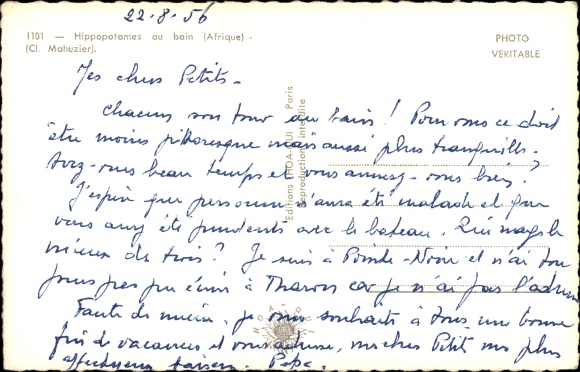 22-8-56
1101 — Hippopotames au bain (Afrique) -
(Cl. Mahuzier).
PHOTO
VERITABLE
Mes chers Petits -
Chacun son tour au bain! Pour vous ce doit
être moins pittoresque mais aussi plus tranquille.
Avez-vous beau temps et vous amusez-vous bien?
J'espère que personne n'aura été malade et que
vous avez été prudents avec le bateau. Qui nage le
mieux de trois? Je suis à Pointe-Noire et n'ai tou
jours pas pu écrire à Tharon car je n'ai pas l'adresse
Faute de mieux, je vous souhaite à tous une bonne
fin de vacances et vous adresse, mes chers Petits mes plus
affectueux baisers. Papa.
Editions HOA-QUI Paris
Reproduction interdite